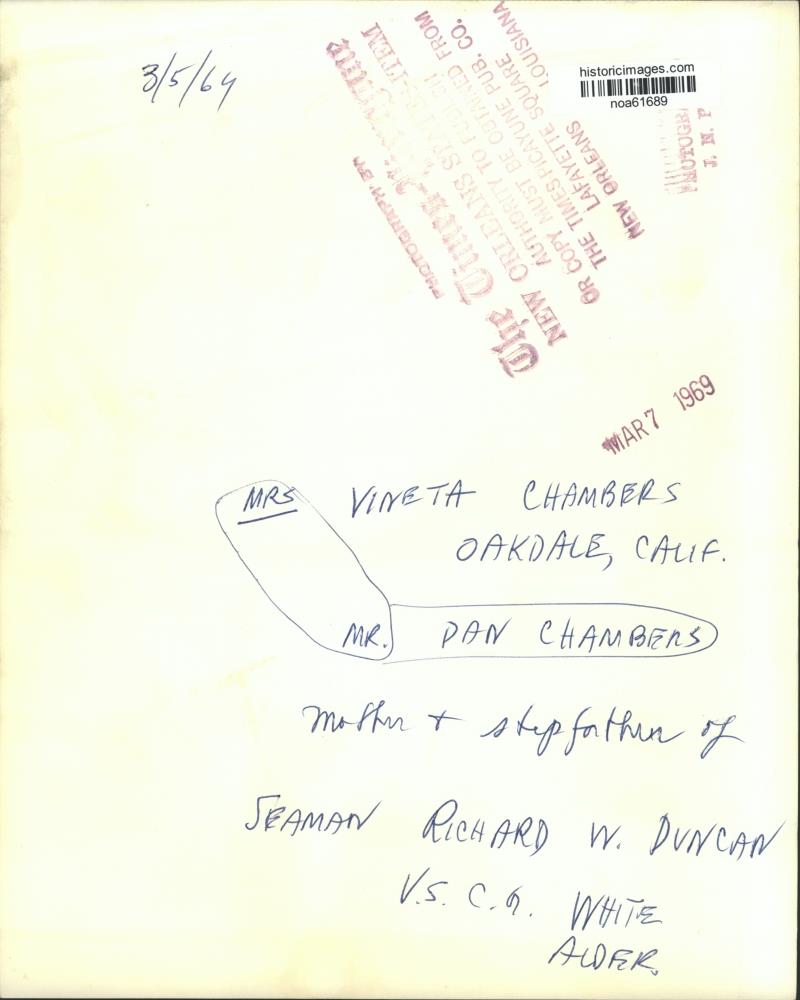 3/5/69
historicimages.com
noa61689
PHOTOGRAPH BY
The Times-Picayune
NEW ORLEANS STATES-ITEM
AUTHORITY TO
OR COPY MUST BE OBTAINED FROM
THE TIMES-PICAYUNE PUB. CO.
LAFAYETTE SQUARE
NEW ORLEANS LOUISIANA
MAR 7 1969
MRS VINETA CHAMBERS
OAKDALE, CALIF.
MR. DAN CHAMBERS
Mother + stepfather of
SEAMAN RICHARD W. DUNCAN
U.S. C.G. WHITE
ALDER.